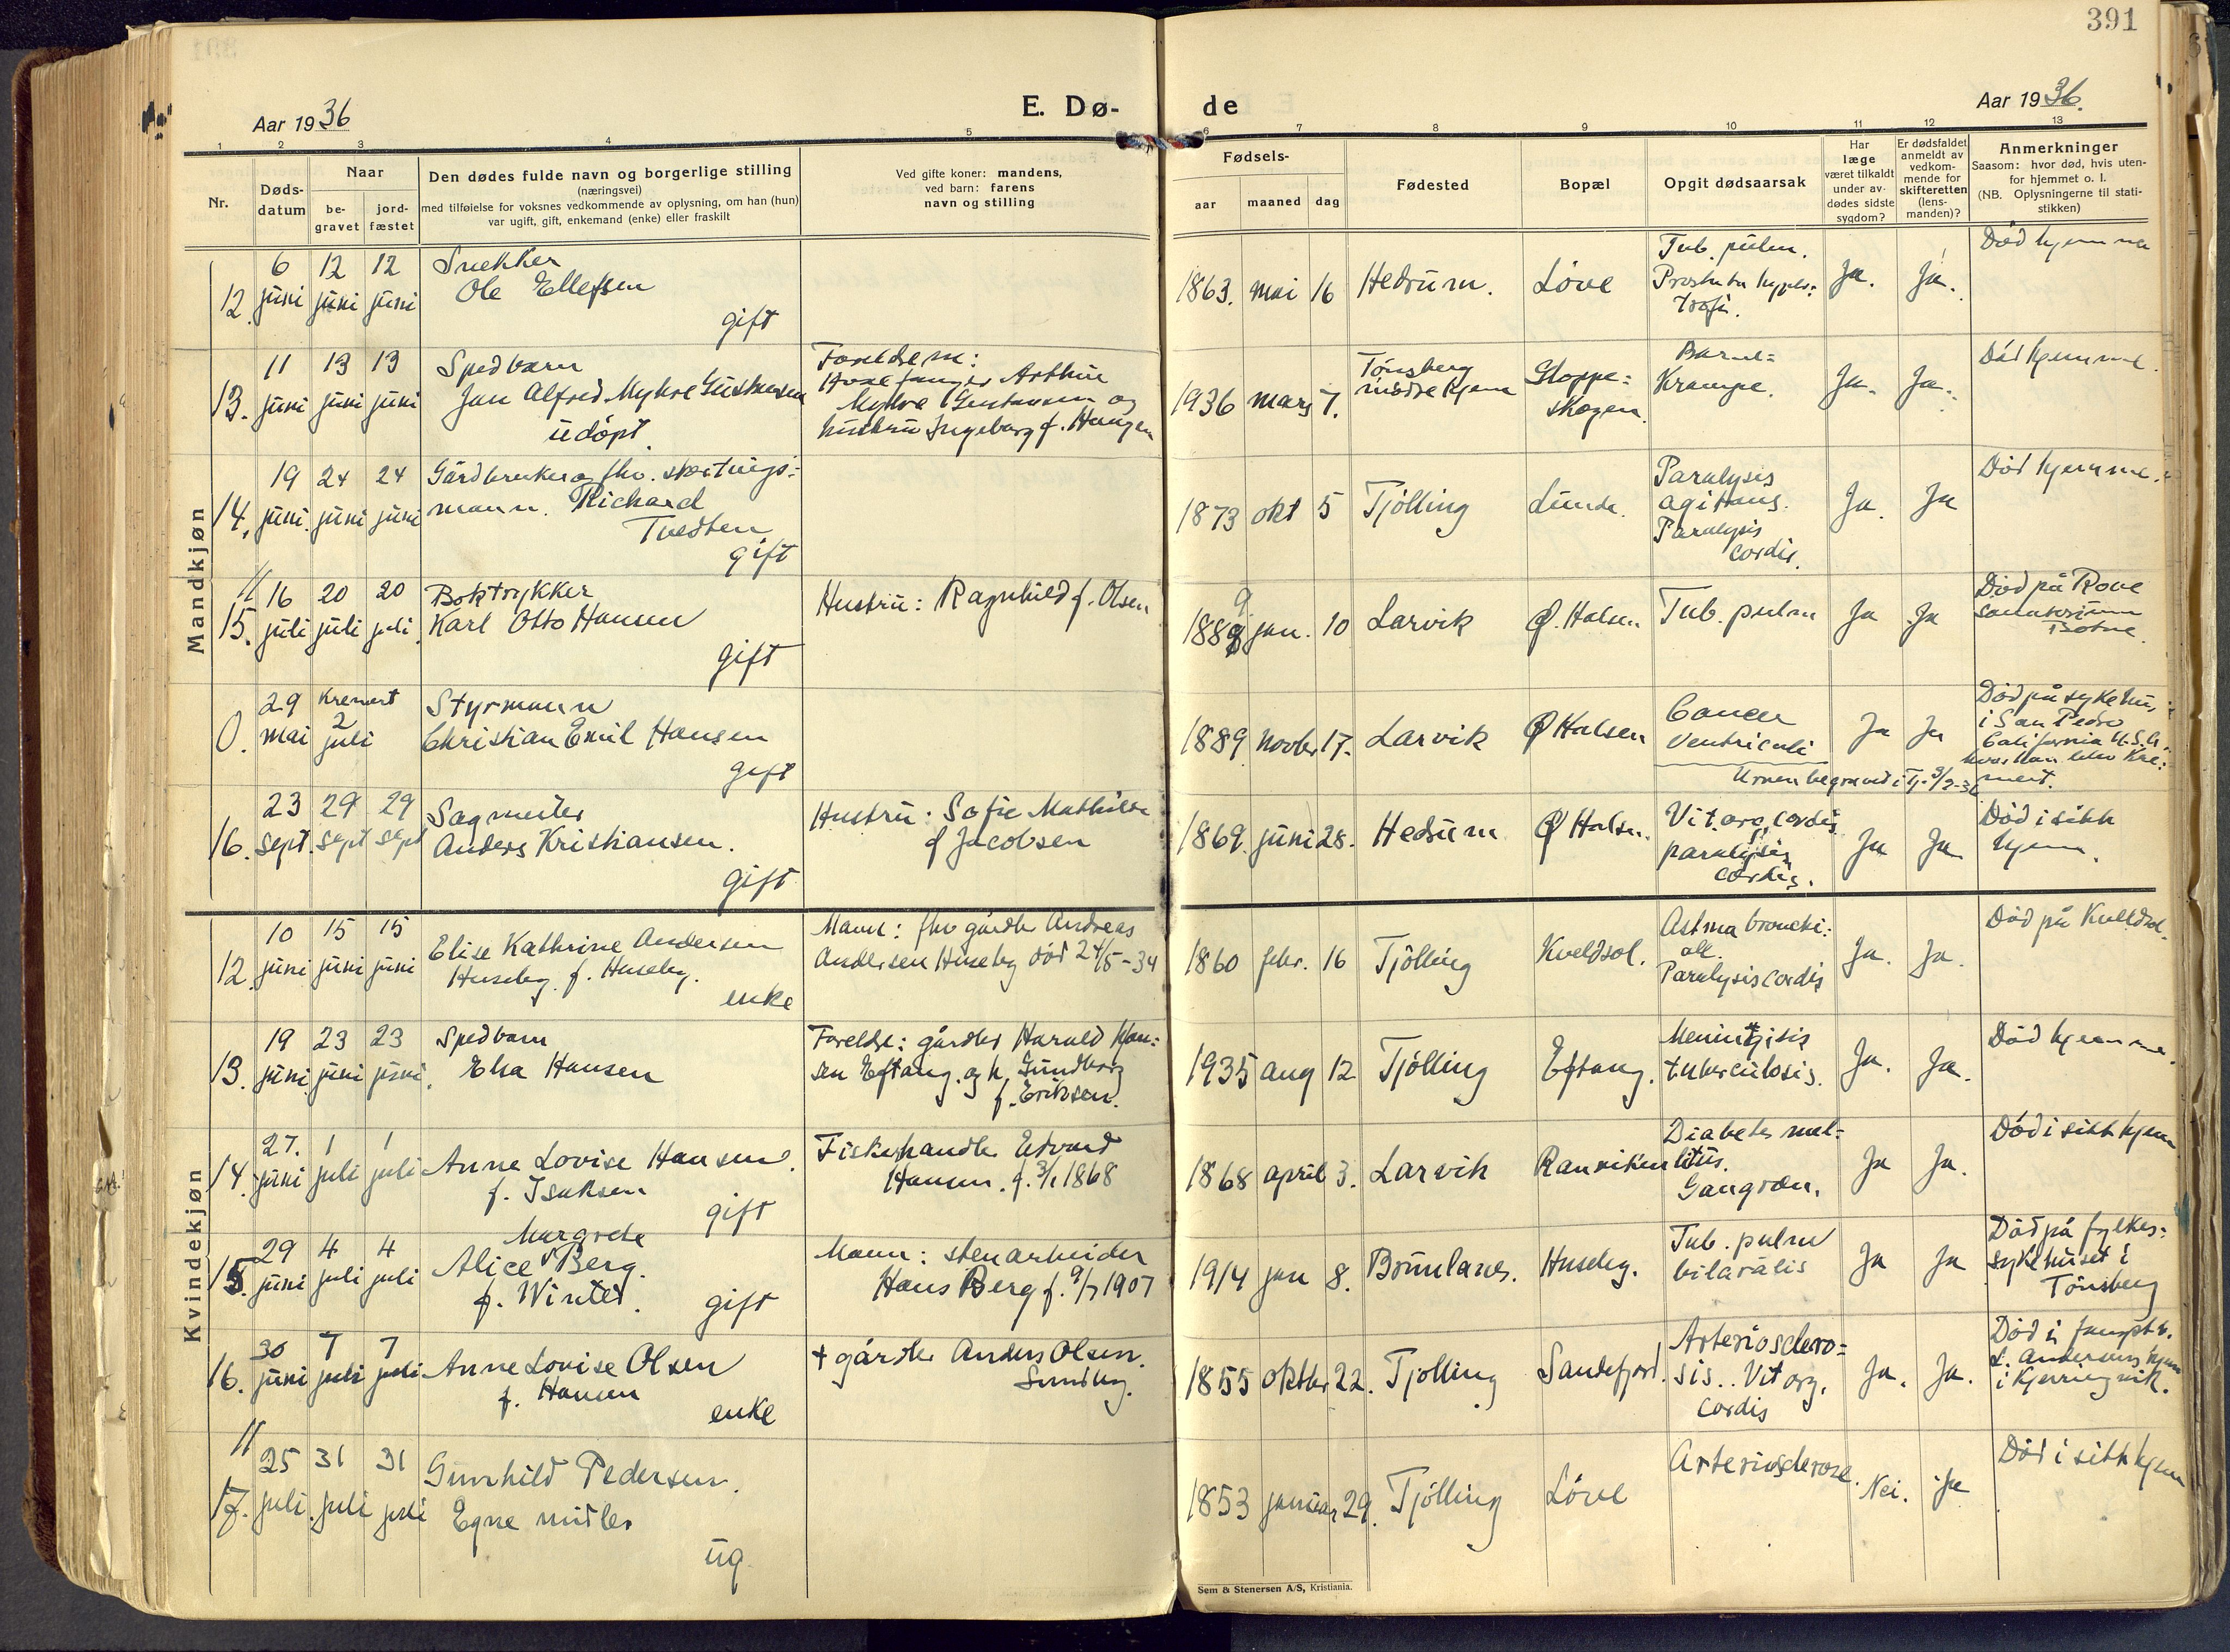 391
Aar 1936
E. Dø-
de
Aar 1936.
1 2 3 4 5 6 7 8 9 10 11 12 13
Nr.
Døds-
datum
Naar
be-
gravet
jord-
fæstet
Den dødes fulde navn og borgerlige stilling
(næringsvei)
med tilføielse for voksnes vedkommende av oplysning, om han (hun)
var ugift, gift, enkemand (enke) eller fraskilt
Ved gifte koner: mandens,
ved barn: farens
navn og stilling
Fødsels-
aar maaned dag
Fødested
Bopæl
Opgit dødsaarsak
Har
læge
været tilkaldt
under av-
dødes sidste
sygdom?
Er dødsfaldet
anmeldt av
vedkom-
mende for
skifteretten
(lens-
manden)?
Anmerkninger
Saasom: hvor død, hvis uten-
for hjemmet o. l.
(NB. Oplysningerne til stati-
stikken)
Mandkjøn
12. 6 juni 12 juni 12 juni
Snekker
Ole Ellefsen
gift
1863. mai 16 Hedrum. Löve
Tub. pulm.
Prostata hyper=
trofi.
Ja. Ja.
Död hjemme
13. 11 juni 13 juni 13 juni
Spedbarn
Jan Alfred Myhre Gustavsen
udöpt.
Foreldrene:
Hvalfanger Arthur
Myhre Gustavsen og
hustru Ingeborg f. Haugen
1936 mars 7.
Tönsberg
mödrehjem
Gloppe=
skogen
Barne=
Krampe.
Ja. Ja.
Död hjemme.
14. 19 juni. 24 juni 24 juni
Gårdbruker og fhv. stortings=
mann. Richard
Tvedten
gift
1873 okt 5 Tjölling Lunde.
Paralysis
agitans.
Paralysis
cordis.
Ja. Ja
Död hjemme.
15. 16 juli 20 juli 20 juli
Boktrykker
Karl Otto Hansen
gift
Hustru: Ragnhild f. Olsen
1889 jan. 10 Larvik Ø. Halsen
Tub. pulm
Ja Ja
Död på Rove
sanatorium
Botne.
0. 29 mai
Kremert
2
juli
Styrmann
Christian Emil Hansen
gift
1889 novbr 17. Larvik Ø Halsen
Cancer
ventriculi
Ja Ja
Död på sykehus
i San Pedro
California U.S.A.
hvor han blev kre=
mert.
Urnen begravd i Tj.
16. 23 sept. 29 sept 29 sept
Sagmester
Anders Kristiansen.
gift
Hustru: Sofie Mathilde
f Jacobsen
1869. juni 28. Hedrum Ø Halsen.
Vit. org. cordis
paralysis
cordis.
Ja Ja
Död i sitt
hjem.
Kvindekjøn
12. 10 juni 15 juni 15 juni
Elise Kathrine Andersen
Huseby f. Huseby.
enke
Mann: fhv gårdbr Andreas
Andersen Huseby död 24/5-34
1860 febr. 16 Tjölling Kveldsol.
Astma bronchi=
ale.
Paralysis cordis
Ja. Ja.
Död på Kveldsol.
13. 19 juni 23 juni 23 juni.
Spedbarn
Elsa Hansen
Foreldre: gårdbr Harald Han=
sen Eftang. og h. Gundborg
f. Eriksen.
1935 aug 12 Tjölling Eftang.
Meningitis
tuberculosis.
Ja. Ja.
Död hjemme.
14. 27. juni 1 juli 1 juli
Anne Lovise Hansen.
f. Isaksen
gift
Fiskehandler Edvard
Hansen. f. 3/1 1868
1868 april 3. Larvik Ranviken
Diabetes mel=
litus.
Gangræn.
Ja Ja.
Död i sitt hjem
15. 29 juni 4 juli 4 juli
Margrete
Alice Berg.
f. Winter.
gift
Mann: stenarbeider
Hans Berg f. 9/7 1907
1914 jan 8. Brunlanes. Huseby.
Tub. pulm
bilaralis
Ja Ja
Död på fylkes=
sykehuset i
Tönsberg
16. 30 juni 7 juli 7 juli
Anne Lovise Olsen
f. Hansen
enke
+ gårdbr Anders Olsen.
Sundby.
1855 oktbr 22. Tjölling Sandefjord.
Arterioschlero=
sis. Vit org.
Cordis
Ja. Ja.
Död i
L. Andersens hjem
i Kjerringvik.
17. 25 juli. 31 juli 31 juli
Gunhild Pedersen.
Egne midler
ug.
1853 januar 29. Tjölling Löve
Arterioschlerose.
Nei. Ja
Död i sitt hjem
Sem & Stenersen A/S, Kristiania.